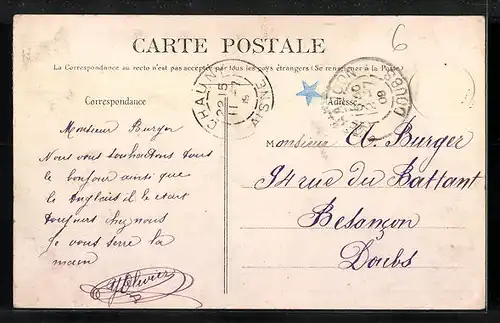 6
CARTE POSTALE
La Correspondance au recto n'est pas acceptée par tous les pays étrangers (Se renseigner à la Poste)
CHAUNY
22 15
11 - 7
AISNE
BESANÇON
DOUBS
Correspondance
Adresse
Monsieur Burger
Nous vous souhaitons tous
le bonjour ainsi que
le Anglais il le etait
toujours chez nous
Je vous serre la
main
Olivier
Monsieur A. Burger
94 rue du Battant
Besançon
Doubs